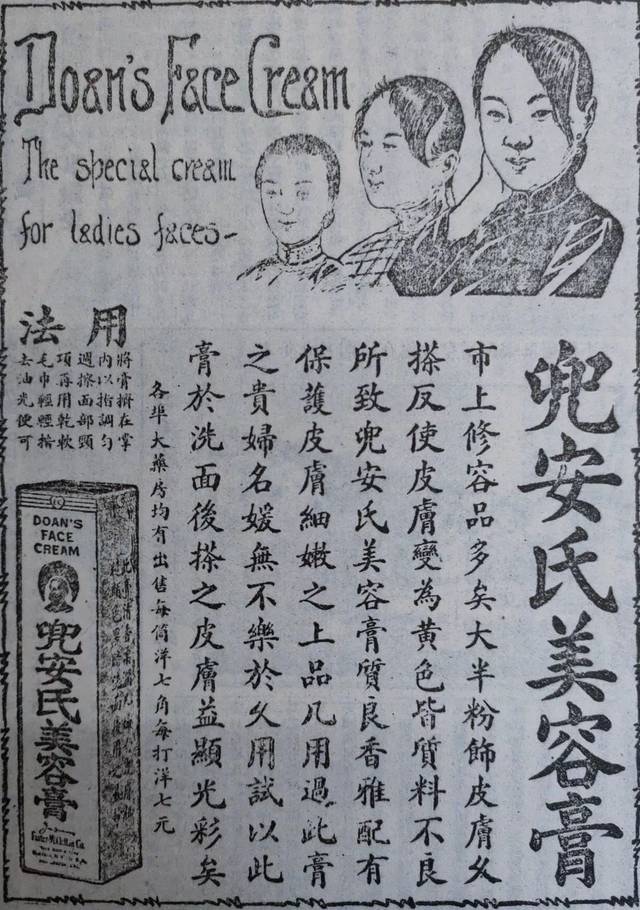 Doan's Face Cream
The special cream
for ladies faces-
兜安氏美容膏
市上修容品多矣大半粉飾皮膚久
搽反使皮膚變為黃色皆質料不良
所致兜安氏美容膏質良香雅配有
保護皮膚細嫩之上品凡用過此膏
之貴婦名媛無不樂於久用試以此
膏於洗面後搽之皮膚益顯光彩矣
各埠大藥房均有出售每筒洋七角每打洋七元
用法
將膏擠在掌
內以指調勻
週擦面部頸
項再用乾軟
毛巾輕輕揩
去油光便可
DOAN'S
FACE
CREAM
兜安氏美容膏
Foster-McClellan Co.